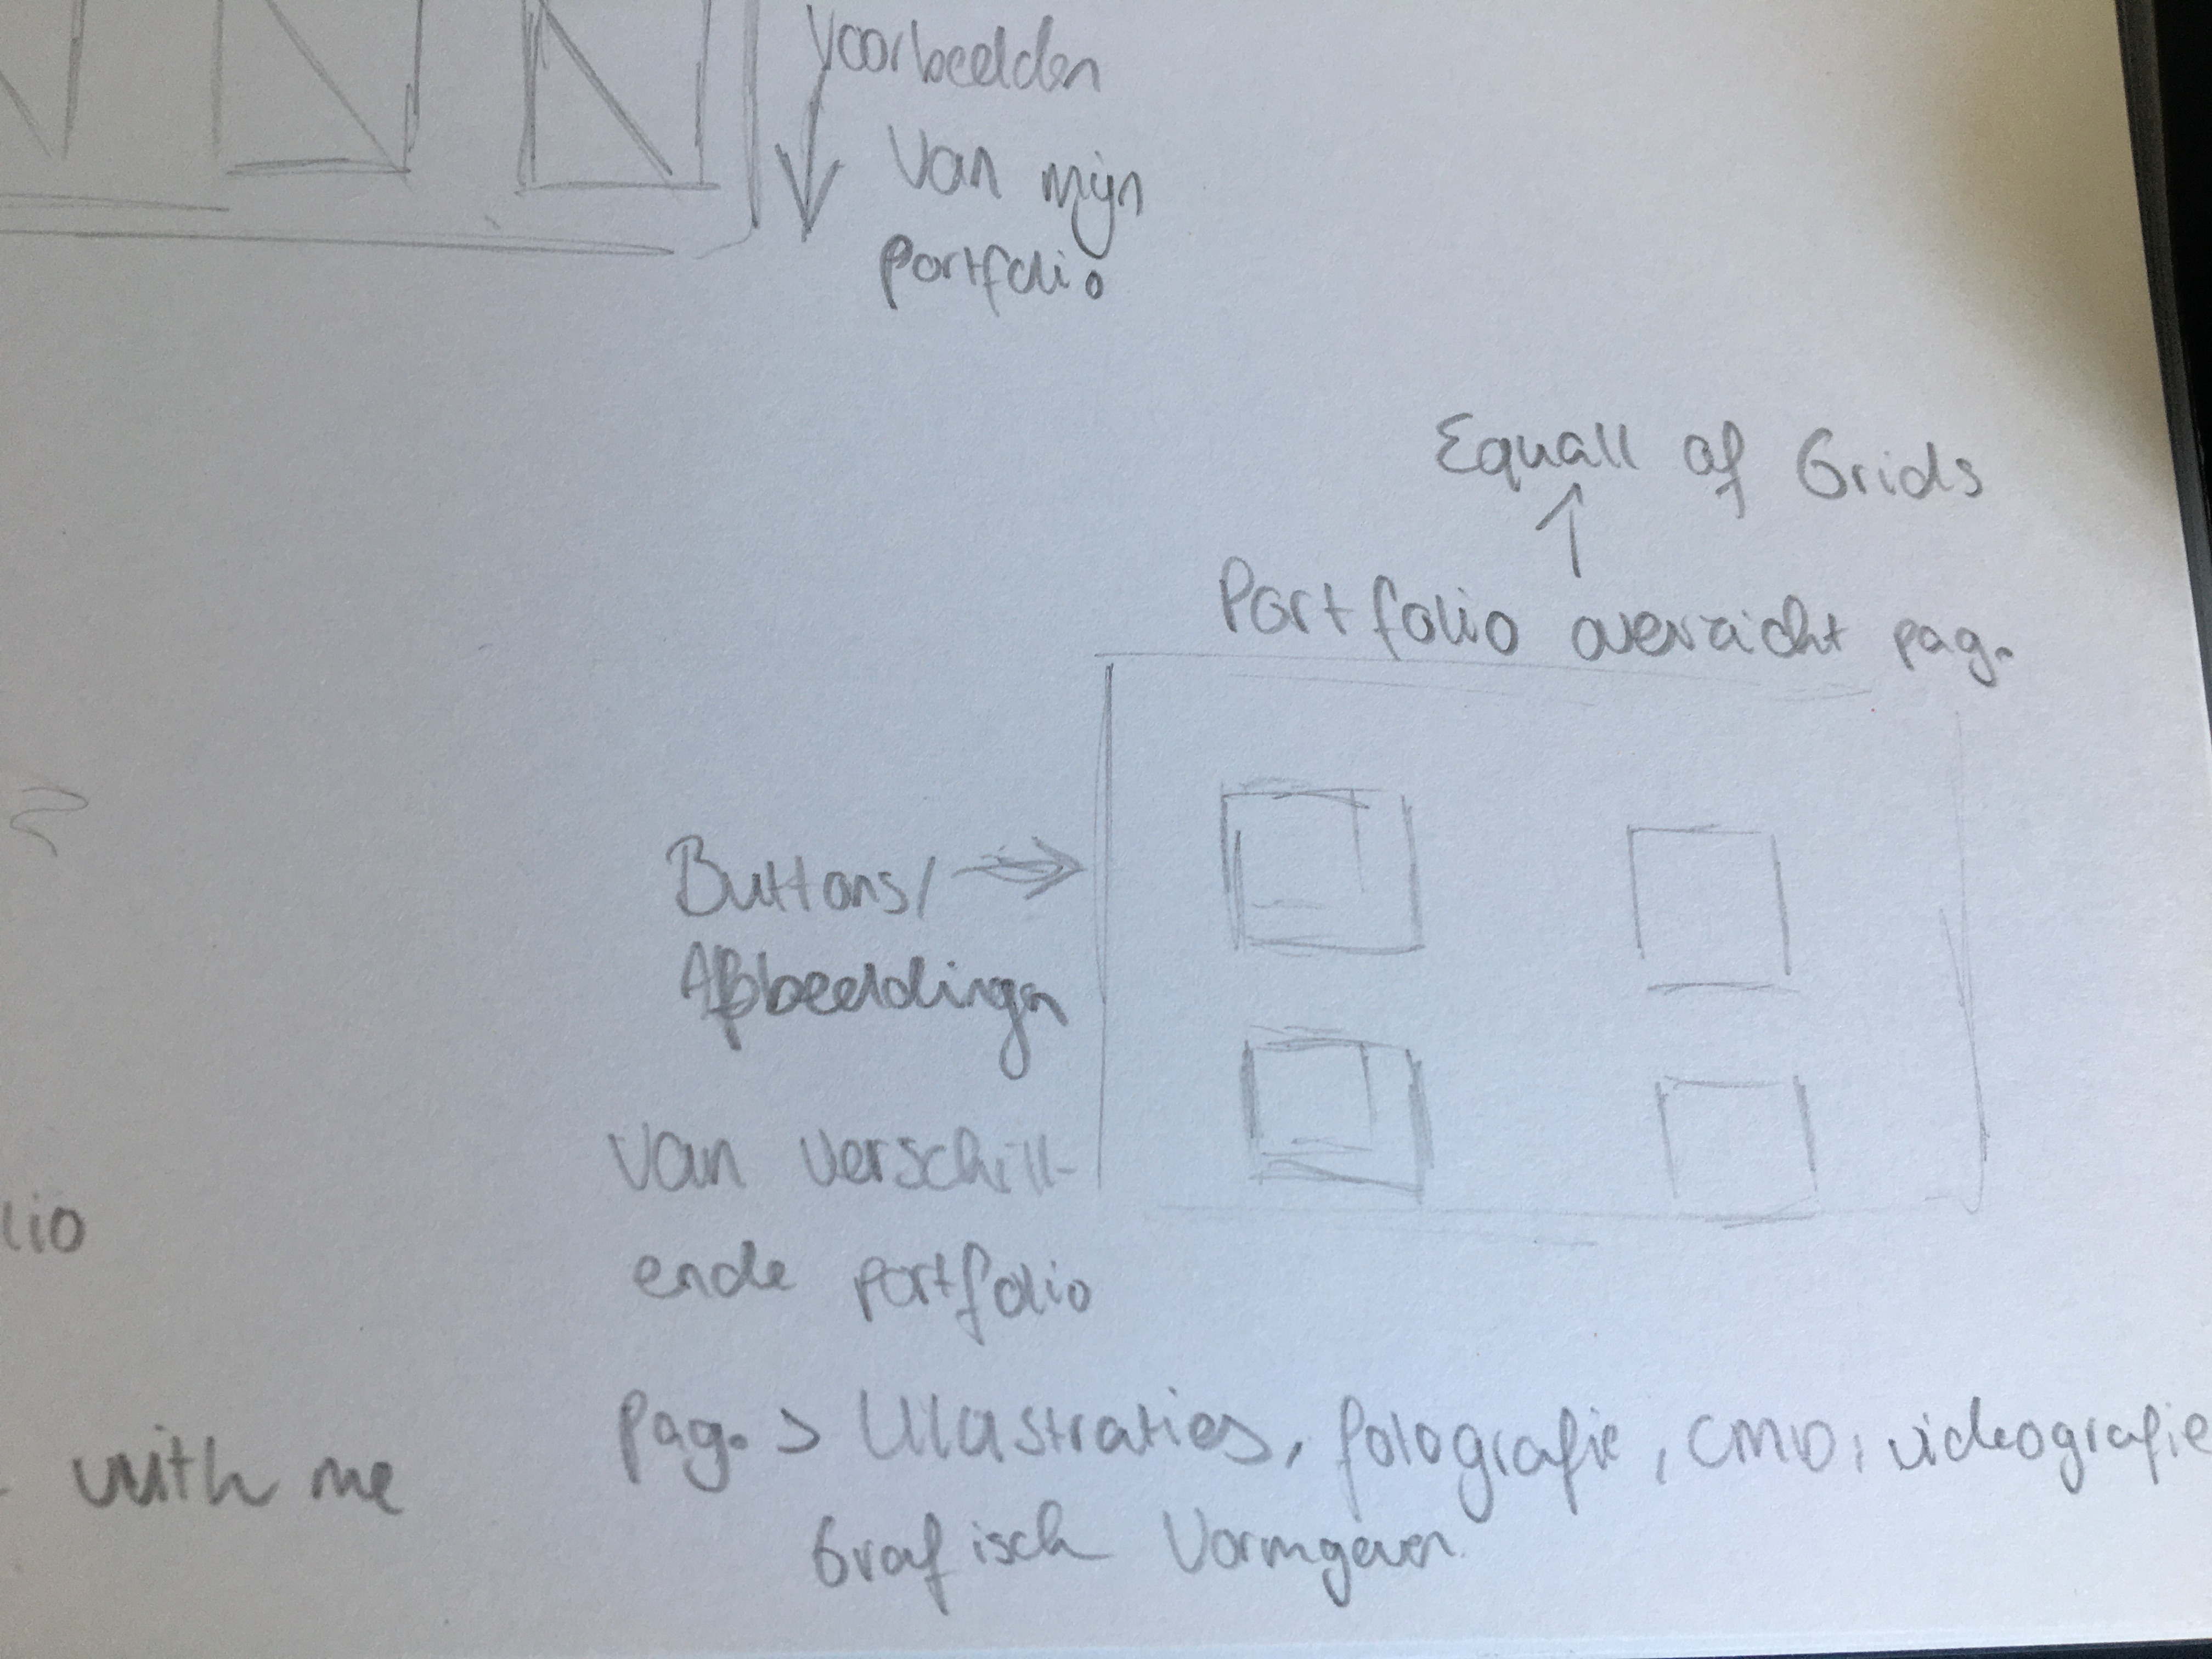 Voorbeelden
van mijn
portfolio
Equall of Grids
Portfolio overzicht pag.
Buttons/
Afbeeldingn
van verschill-
ende portfolio
lio
Pag. > Ullustraties, fotografie, CMD, videografie
Grafisch vormgeven
with me